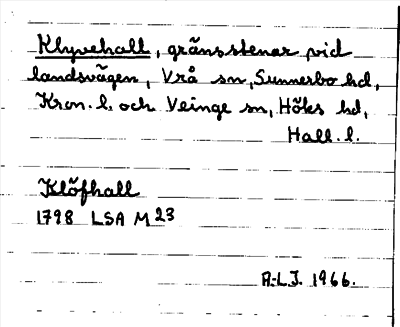 Klyvehall, gränsstenar vid
landsvägen, Vrå sn, Sunnerbo hd,
Kron. l. och Veinge sn, Höks hd,
Hall. l.
Klöfhall
1798 LSA M 23
A-L.J. 1966.